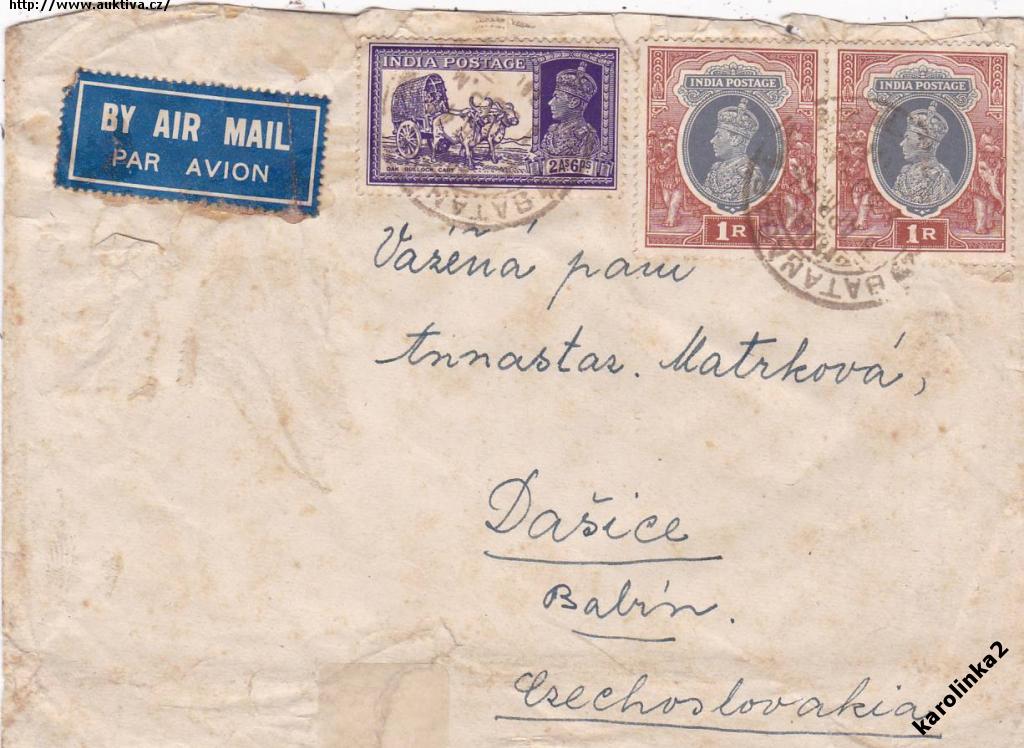 http://www.auktiva.cz/
BY AIR MAIL
PAR AVION
INDIA POSTAGE
DAK BULLOCK CART
2AS6PS
INDIA POSTAGE
1R
INDIA POSTAGE
1R
BATANA
BATANA
Vážená paní
Annastaz. Matrková,
Dašice
Czechoslovakia
karolinka2